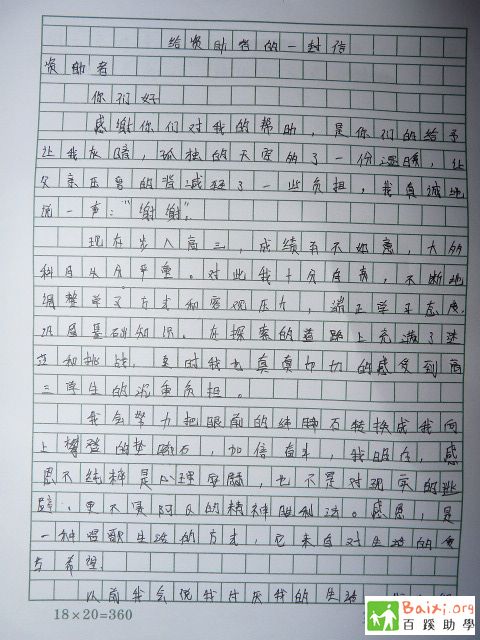 给资助者的一封信
资助者
你们好
感谢你们对我的帮助，是你们的给予
让我灰暗，孤独的天空的了一份温暖，让
父亲压弯的背减轻了一些负担，我真诚地
说一声："谢谢"。
现在步入高三，成绩有不如意，大部
科目以及严重。对此我十分自责，不断地
调整学习方式和客观压力，端正学习态度，
巩固基础知识。在探索的道路上充满了迷
茫和挑战，同时我也真真切切的感受到高
三学生的沉重负担。
我会努力把眼前的绊脚石转换成我向
上攀登的垫脚石，加倍奋斗，我明白，感
恩不纯粹是心理安慰，也不是对现实的逃
避，更不是阿Q的精神胜利法。感恩，是
一种唱歌生活的方式，它来自对生活的爱
与希望。
以前我会说我讨厌我的生活
18×20=360
Baixi.org
百蹊助學